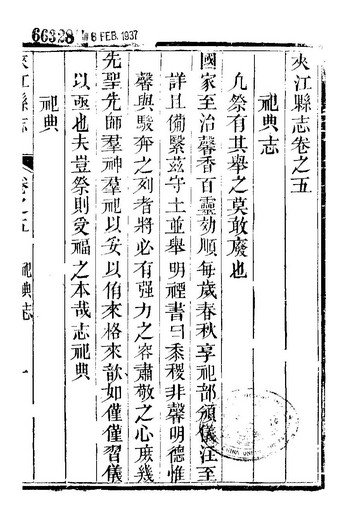 66328
8 FEB. 1937
夾江縣志卷之五
祀典志
凡祭有其舉之莫敢廢也
國家至治馨香百靈効順每歲春秋享祀部頒儀注至
詳且備繄茲守土並舉明禋書曰黍稷非馨明德惟
馨與駿奔之列者將必有强力之容肅敬之心庶幾
先聖先師羣神羣祀以妥以侑來格來歆如僅僅習儀
以亟也夫豈祭則受福之本哉志祀典
祀典
夾江縣志
卷之五
祀典志
一